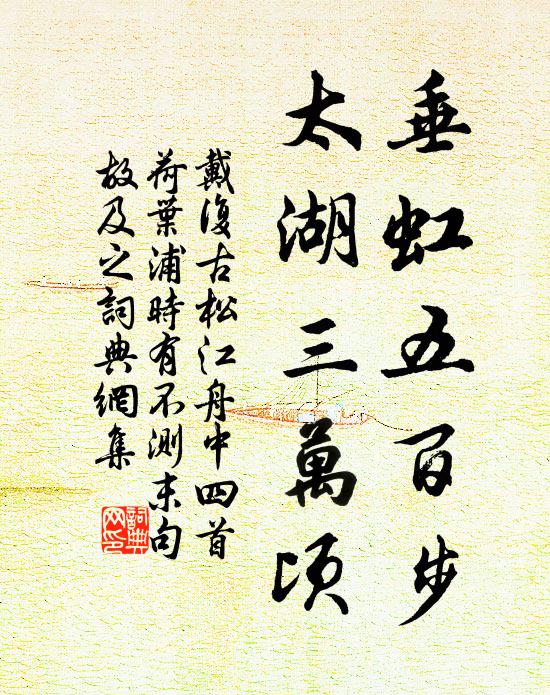 垂虹五百步
太湖三萬頃
戴復古松江舟中四首
荷葉浦時有不測末句
故及之詞典網集
詞典
网印